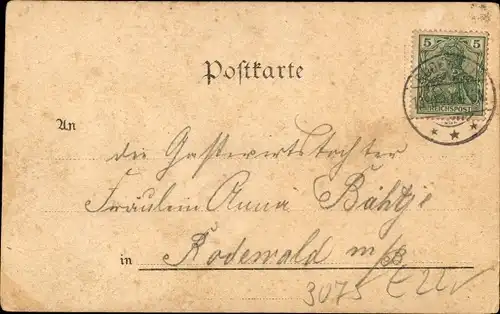 5 5
REICHSPOST
Postkarte
An
die Gastwirtstochter
Fräulein Anna Bähtje
in Rodewald m/B
3075 E 22